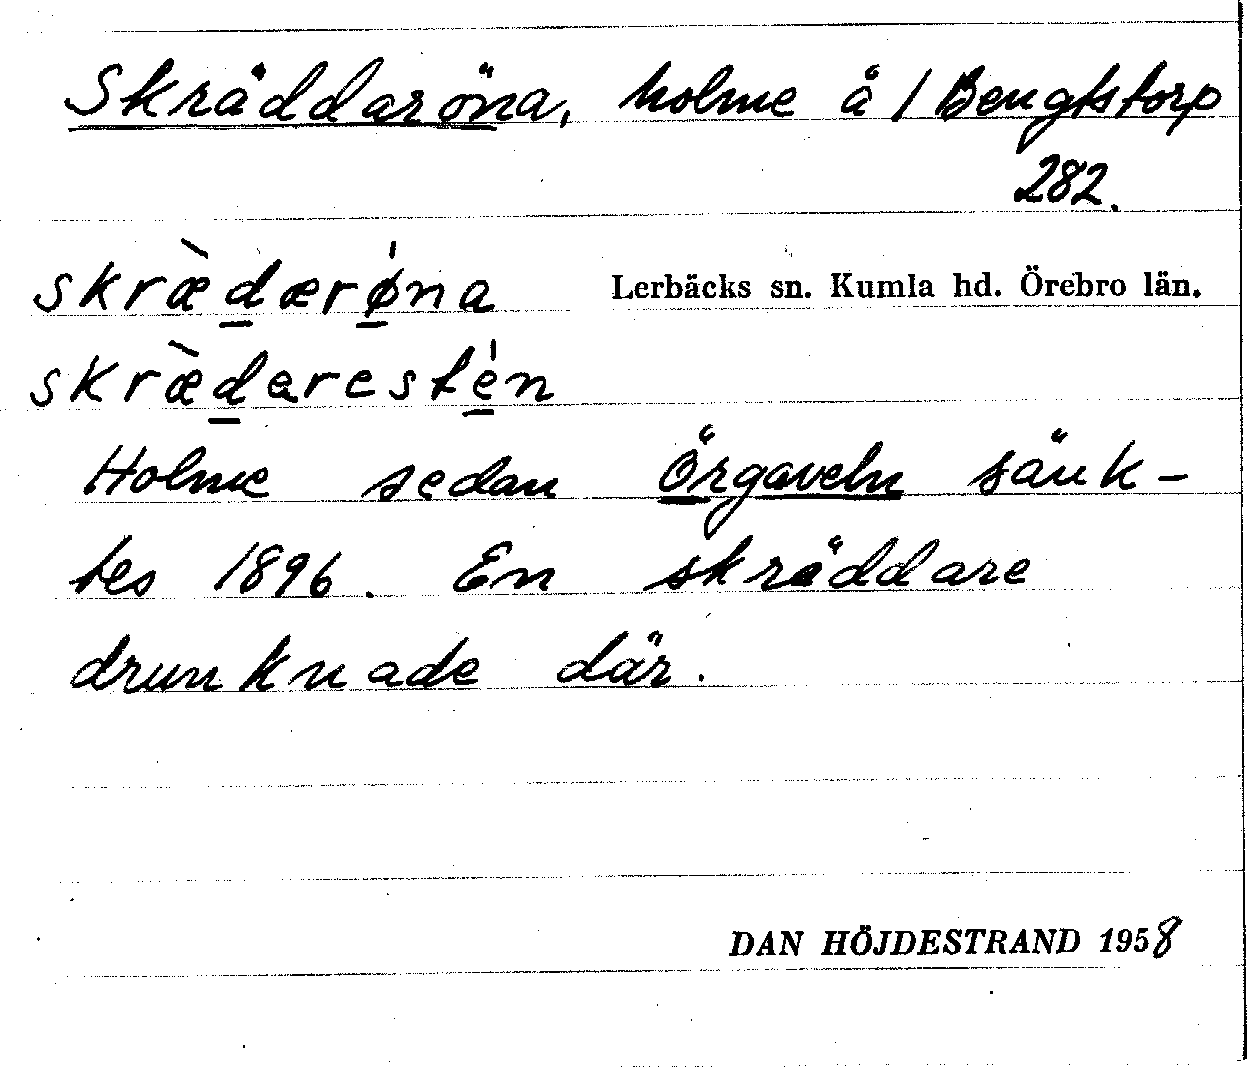 Skräddaröna, holme å / Bengtstorp
282.
skræ̀dærǿna Lerbäcks sn. Kumla hd. Örebro län.
skræ̀darestén
Holme sedan Örgaveln sänk-
tes 1896. En skräddare
drunknade där.
DAN HÖJDESTRAND 1958